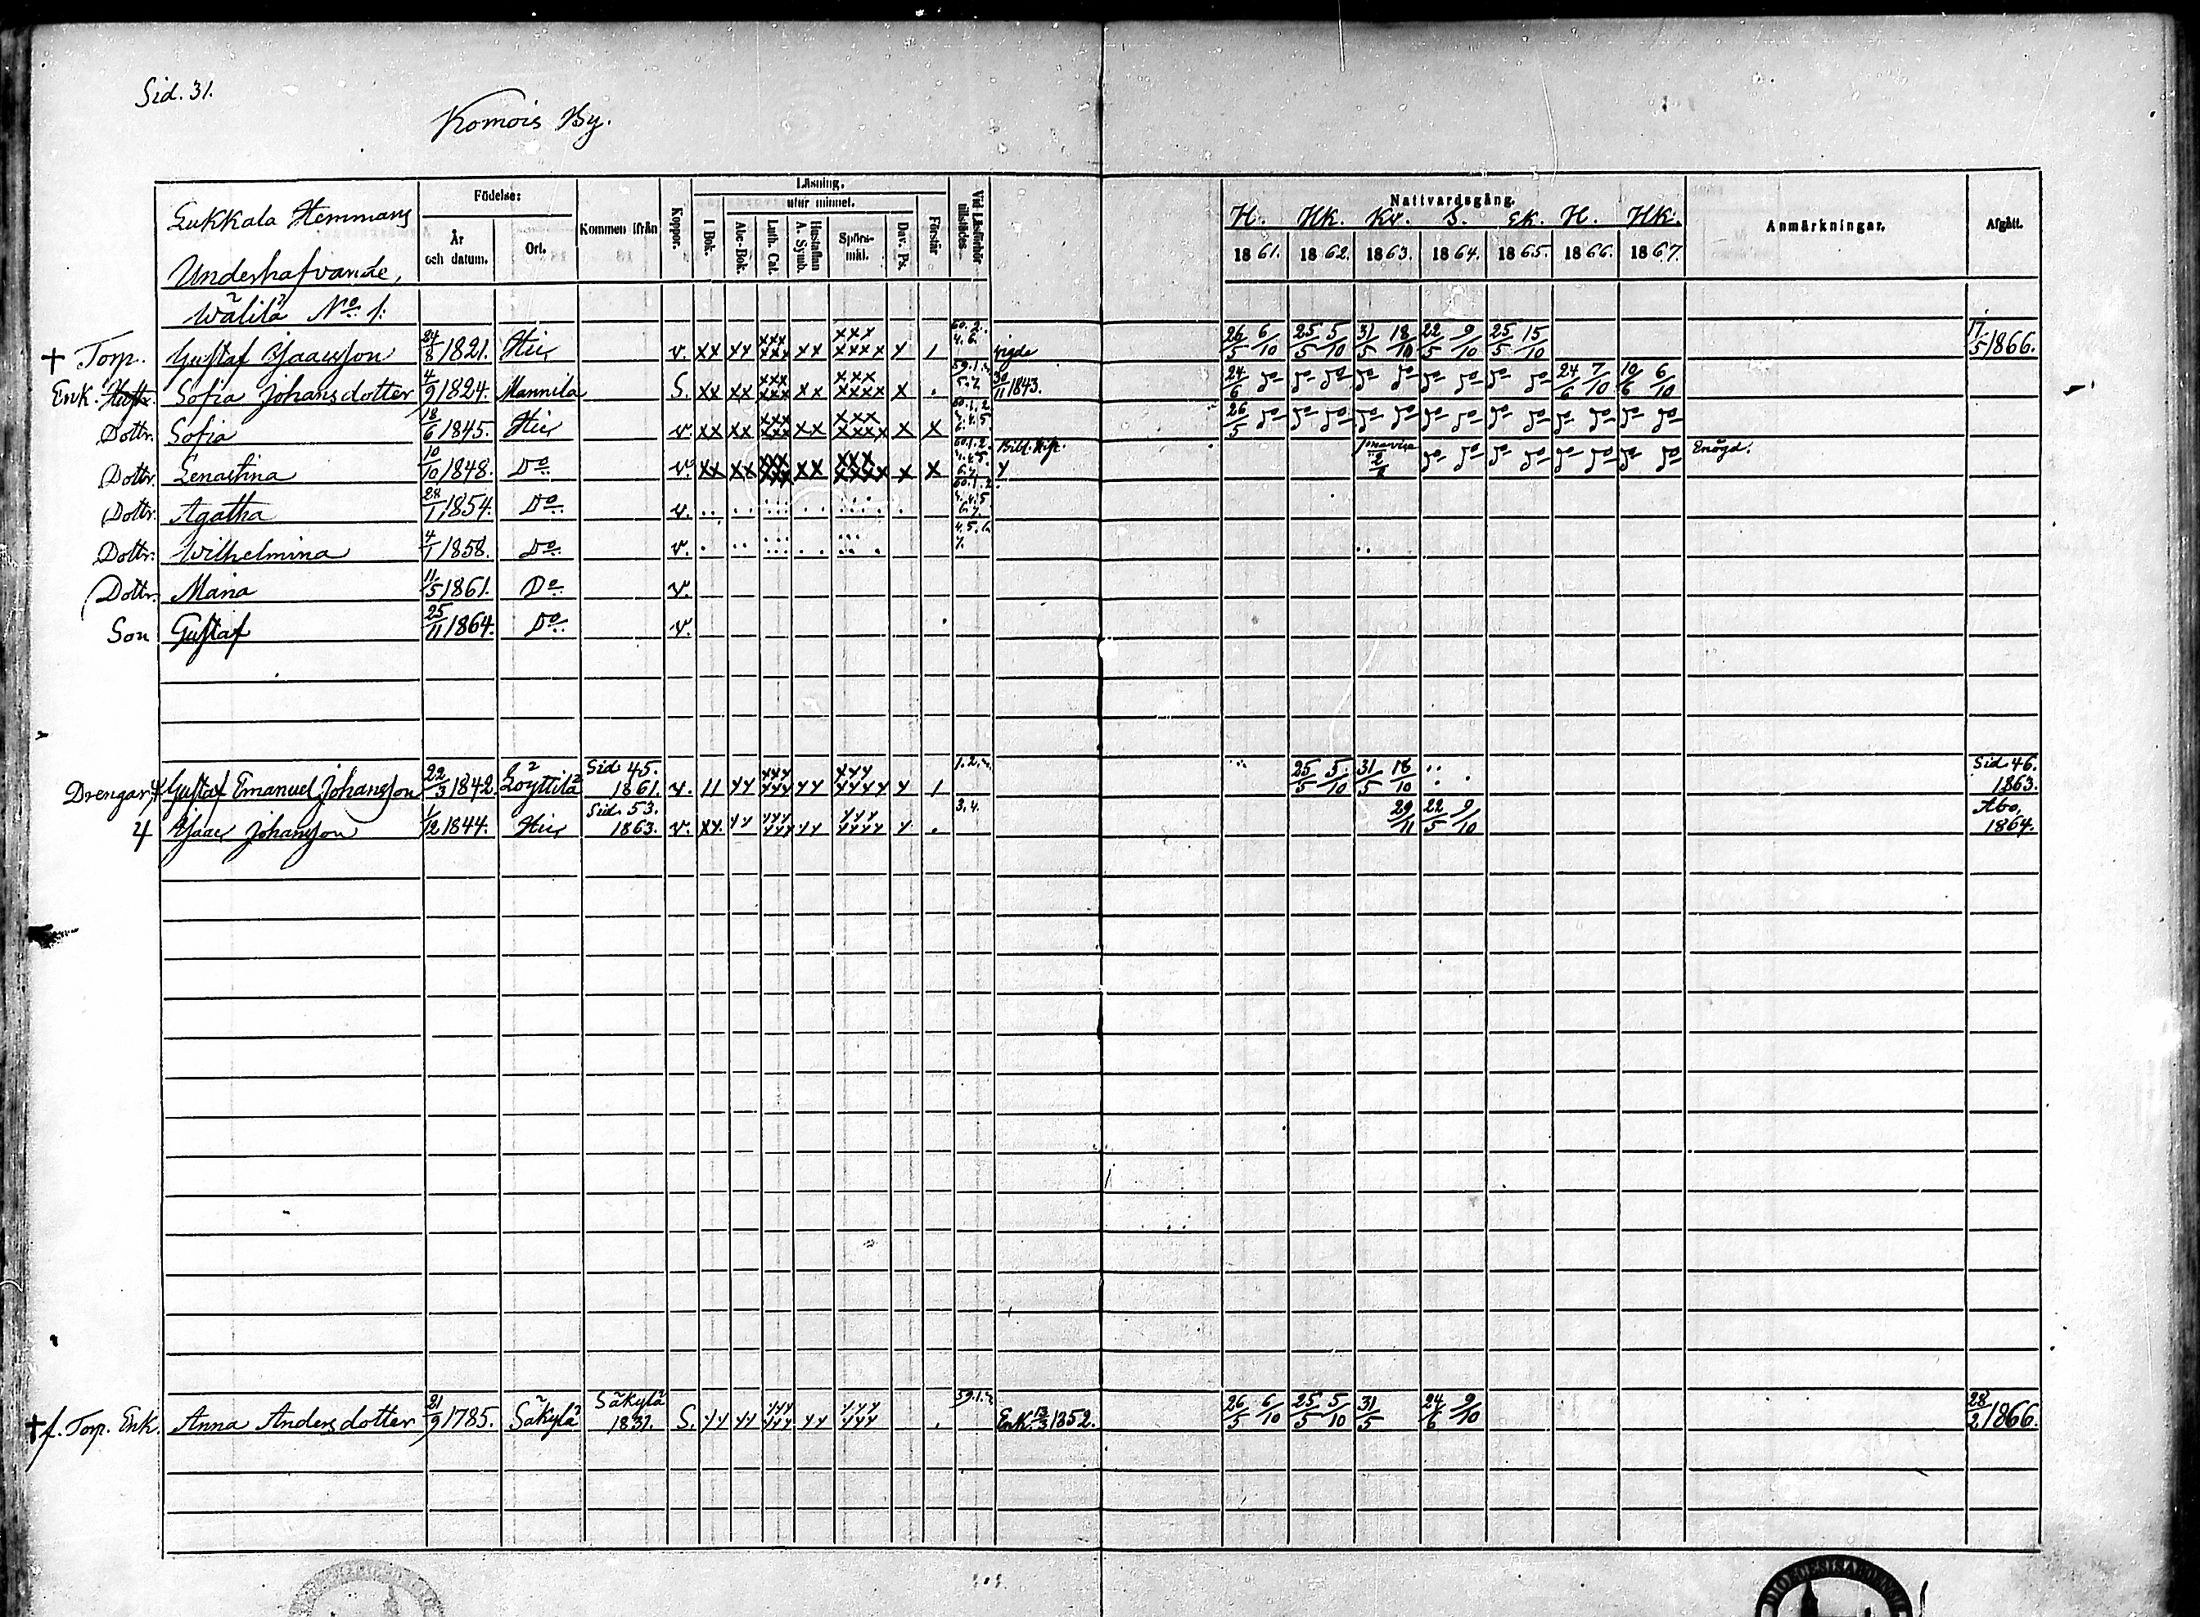 Sid. 31.
Komois By.
Lukkala Hemmans
Underhafvande,
Wälilä No 1:
Födelse:
År och datum.
Ort.
Kommen ifrån
Koppor.
Läsning.
I Bok.
utur minnet.
Abc-Bok.
Luth. Cat.
Hustaflan A. Symb.
Spörsmål.
Dav. Ps.
Förstår
Vid Läsförhör tillstädes
Nattvardsgång.
H. Hk. Kv. S. Ek. H. Hk.
1861. 1862. 1863. 1864. 1865. 1866. 1867.
Anmärkningar.
Afgått.
† Torp. Gustaf Isaacsson 24/8 1821. Här v. xx xx xxx xxx xx xxx xxxx x / 60. 2. 4. 6. vigde 26/5 6/10 25/5 5/10 31/5 18/10 22/5 9/10 25/5 15/10 17/5 1866.
Enk. Hustr. Sofia Johansdotter 4/9 1824. Mannila S. xx xx xxx xxx xx xxx xxxx x . 30/11 1843. 24/6 do do do do do do do do do 24/6 7/10 10/6 6/10
Dottr. Sofia 18/6 1845. Här v. xx xx xxx xxx xx xxx xxxx x x 26/5 do do do do do do do do do do do do do
Dottr. Lenastina 10/10 1848. Do v. xx xx xxx xxx xx xxx xxxx x x do do do do do do do do Enögd.
Dottr. Agatha 28/1 1854. Do v.
Dottr. Wilhelmina 4/1 1858. Do v. 4. 5. 6. 7.
Dottr. Maria 11/5 1861. Do v.
Son Gustaf 25/11 1864. Do v.
Drengar Gustaf Emanuel Johansson 22/3 1842. Löyttilä Sid 45. 1861. v. 25/5 5/10 31/5 18/10 Sid 46. 1863.
Isaac Johansson 1/12 1844. Här Sid. 53. 1863. v. 3. 4. 29/11 22/5 9/10 Åbo, 1864.
† f. Torp. Enk. Anna Andersdotter 21/9 1785. Säkylä Säkylä 1831. S. 59. 1. 2. Enk. 13/3 1852. 26/5 6/10 25/5 5/10 31/5 24/6 9/10 28/2 1866.